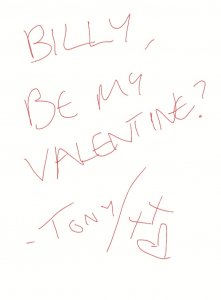 BILLY,
BE MY
VALENTINE?
- TONY / XX